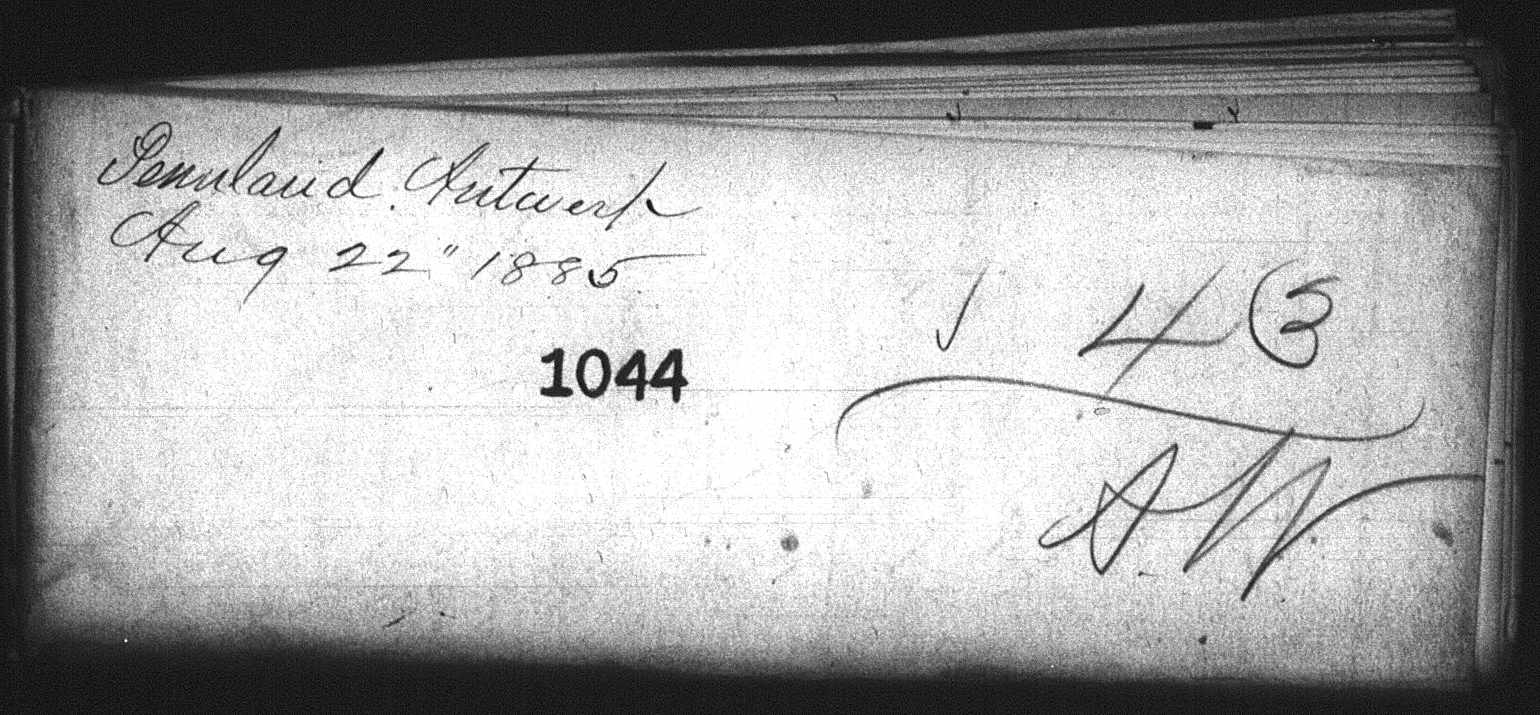 Pennland. Antwerp
Aug 22" 1885
1044
4 3